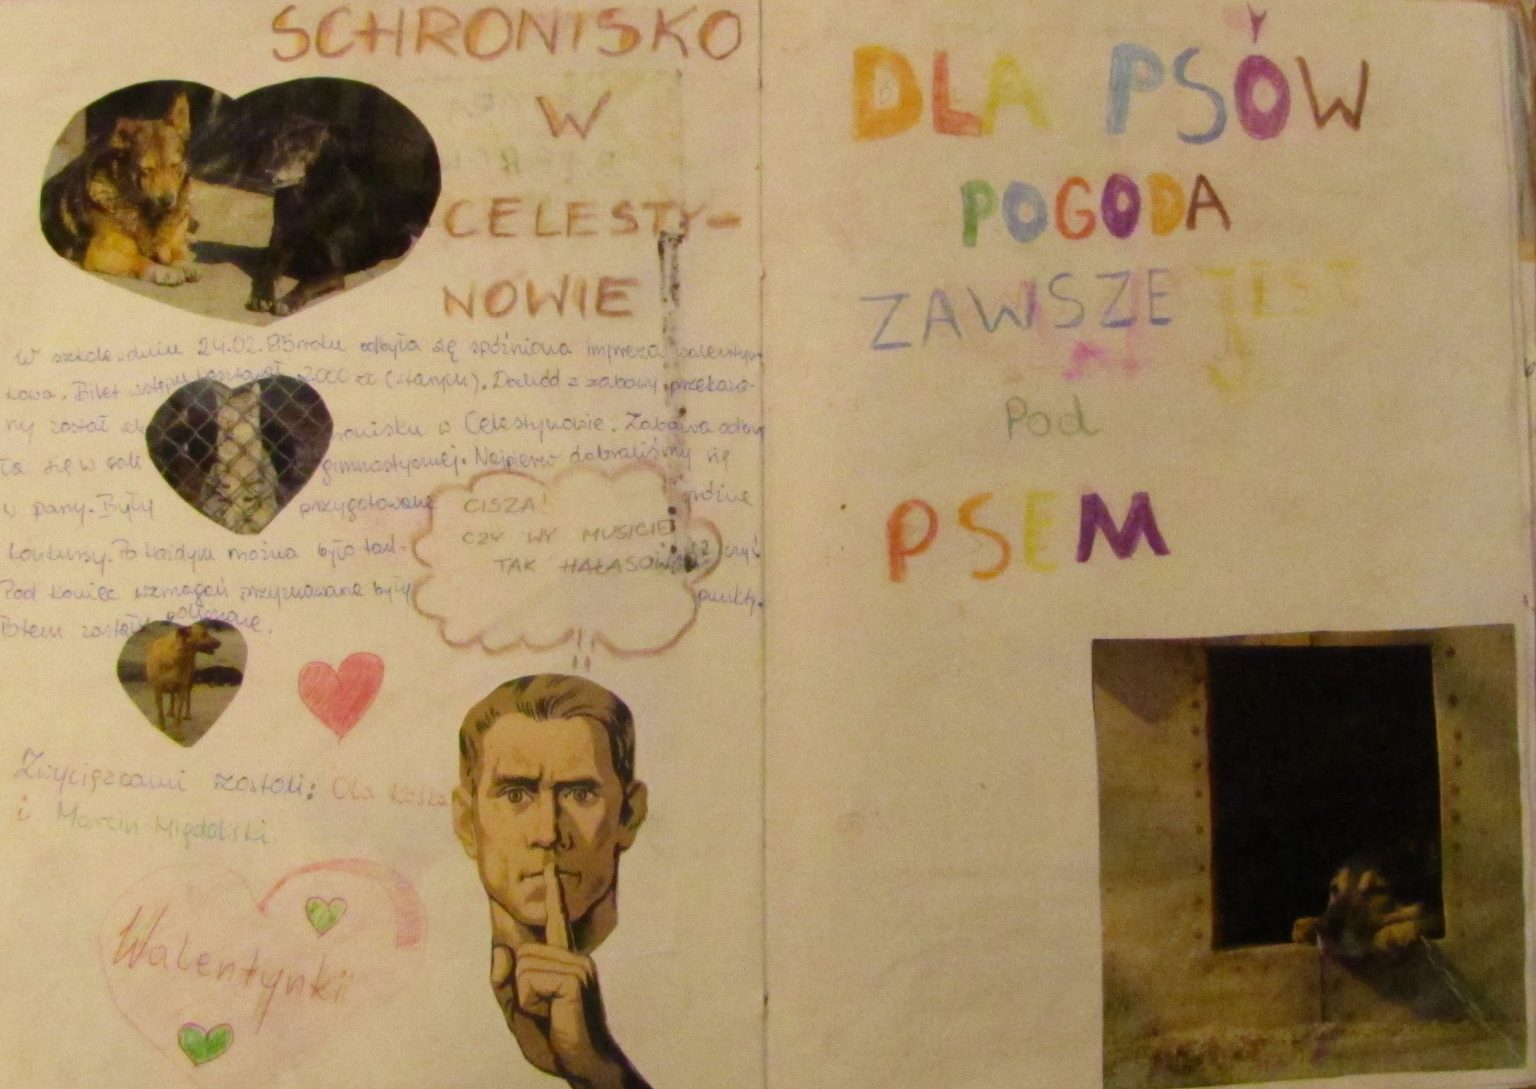 SCHRONISKO
W
CELESTY-
NOWIE
W szkole w dniu 24.02.95 roku odbyła się spóźniona impreza walentyn-
kowa. Bilet wstępu kosztował 2000 zł (starych). Dochód z zabawy przekaza-
ny został w Celestynowie. Zabawa odby
ła się w sali gimnastycznej. Najpierw dobraliśmy się
w pary. Były przygotowane różne
konkursy. Po każdym można było tań- czyć
Pod koniec wzmagań przyznawane były punkty.
Potem zostały policzone.
CISZA!
CZY WY MUSICIE
TAK HAŁASOWAĆ?
Zwycięzcami zostali: Ola Kośka
i Marcin Migdalski.
Walentynki
DLA PSÓW
POGODA
ZAWSZE JEST
Pod
PSEM